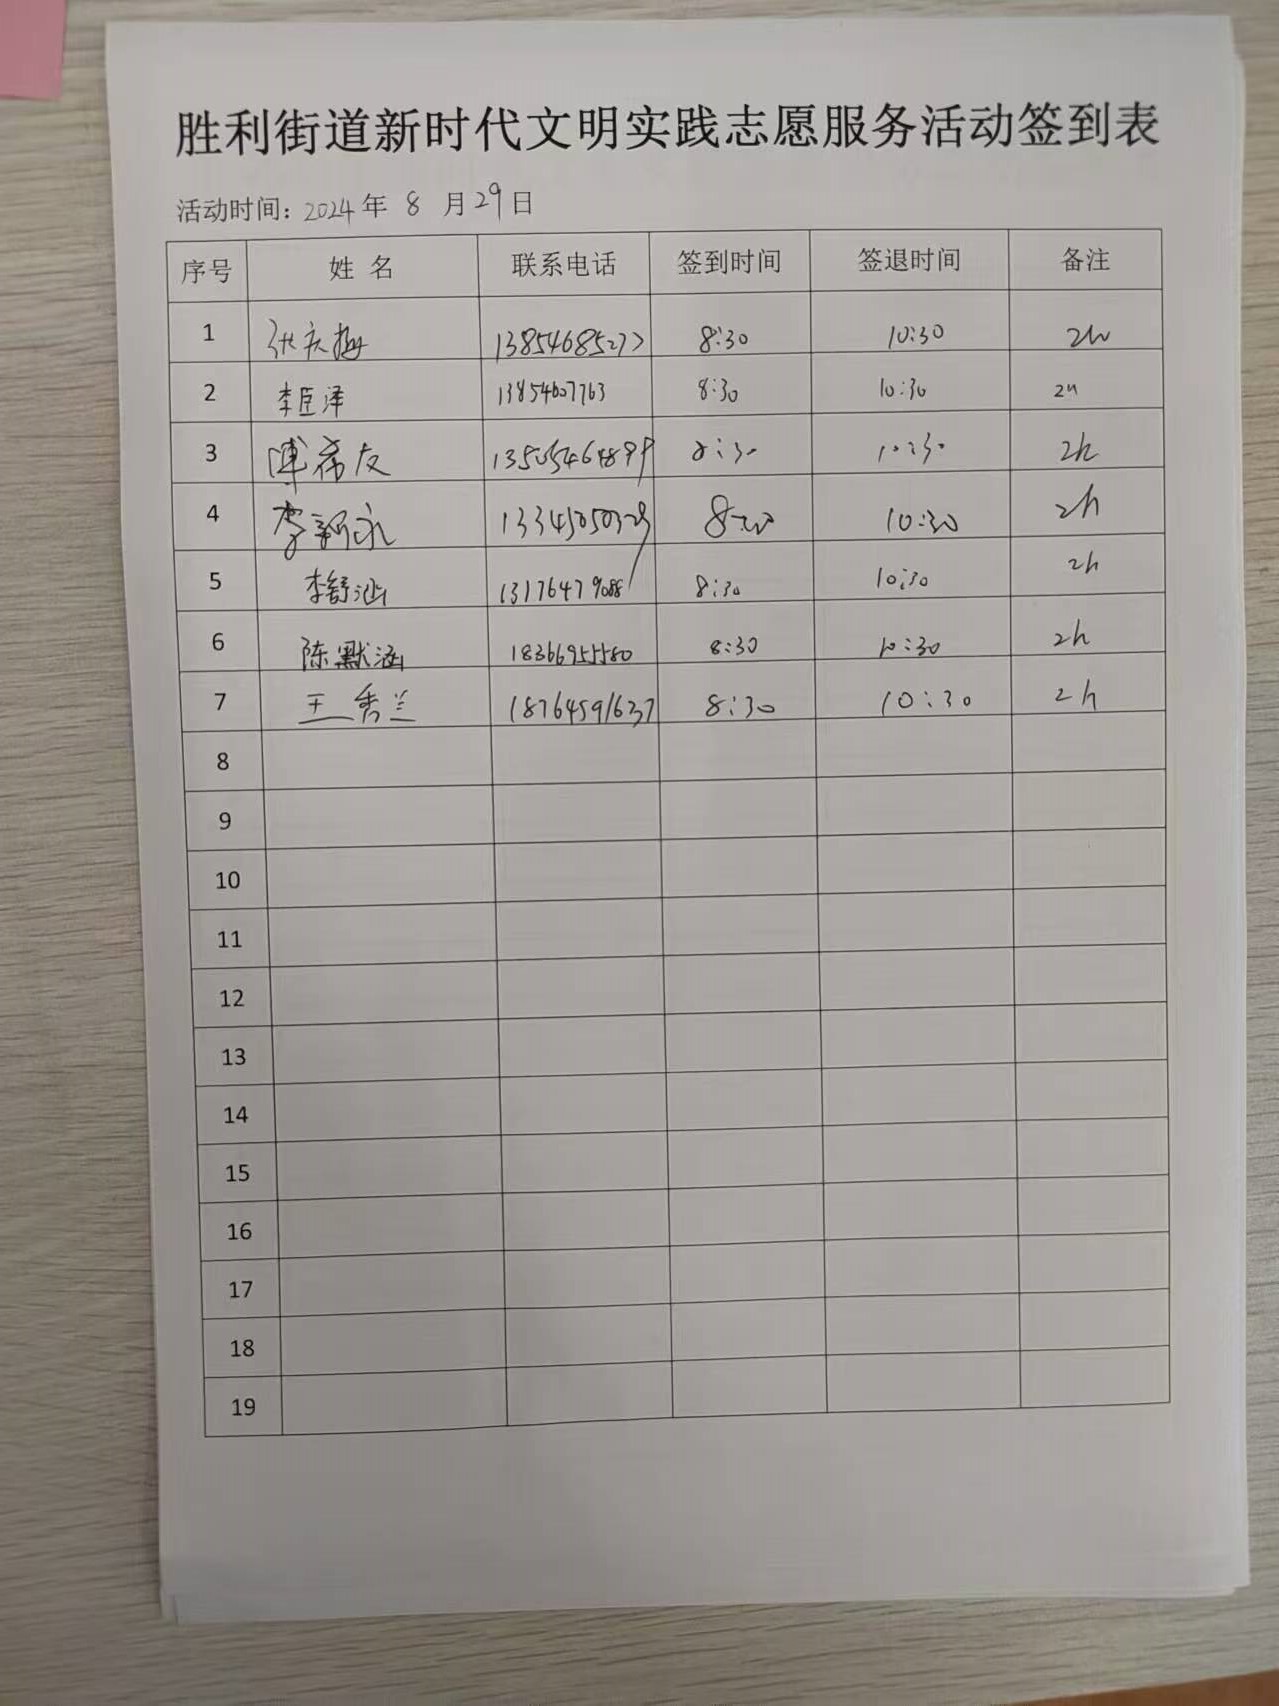 胜利街道新时代文明实践志愿服务活动签到表
活动时间：2024年 8 月29日
序号 姓 名 联系电话 签到时间 签退时间 备注
1 张庆梅 13854685277 8:30 10:30 2h
2 李臣泽 13854607763 8:30 10:30 2h
3 陈希友 8:30 10:30 2h
4 李新永 8:30 10:30 2h
5 李舒涵 13176479088 8:30 10:30 2h
6 陈默涵 18366955580 8:30 10:30 2h
7 王秀兰 18764591637 8:30 10:30 2h
8
9
10
11
12
13
14
15
16
17
18
19